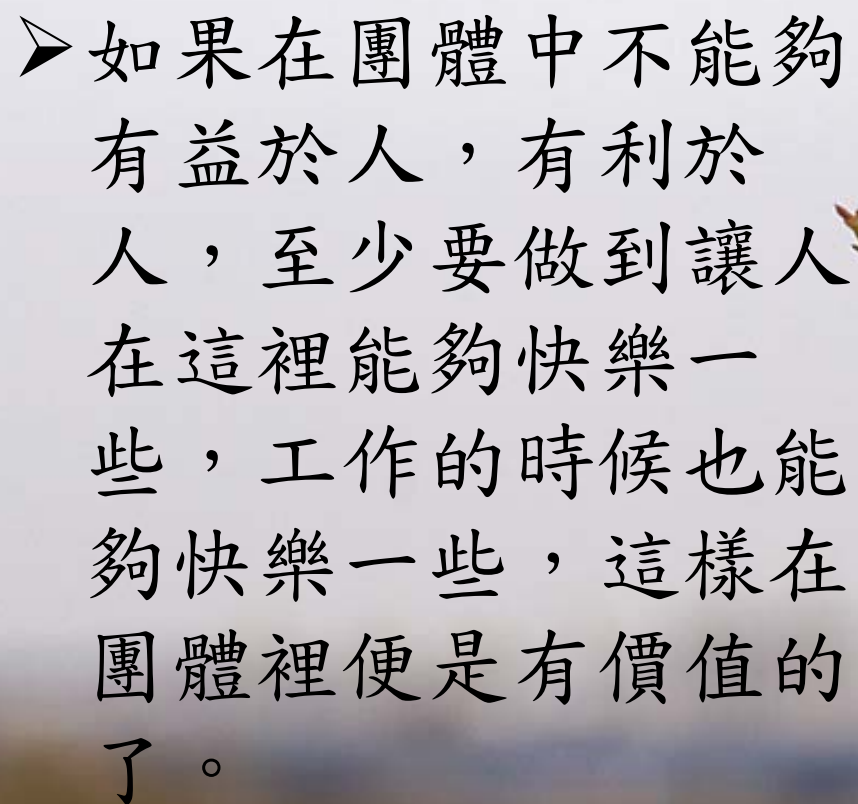 ➢如果在團體中不能夠
有益於人，有利於
人，至少要做到讓人
在這裡能夠快樂一
些，工作的時候也能
夠快樂一些，這樣在
團體裡便是有價值的
了。